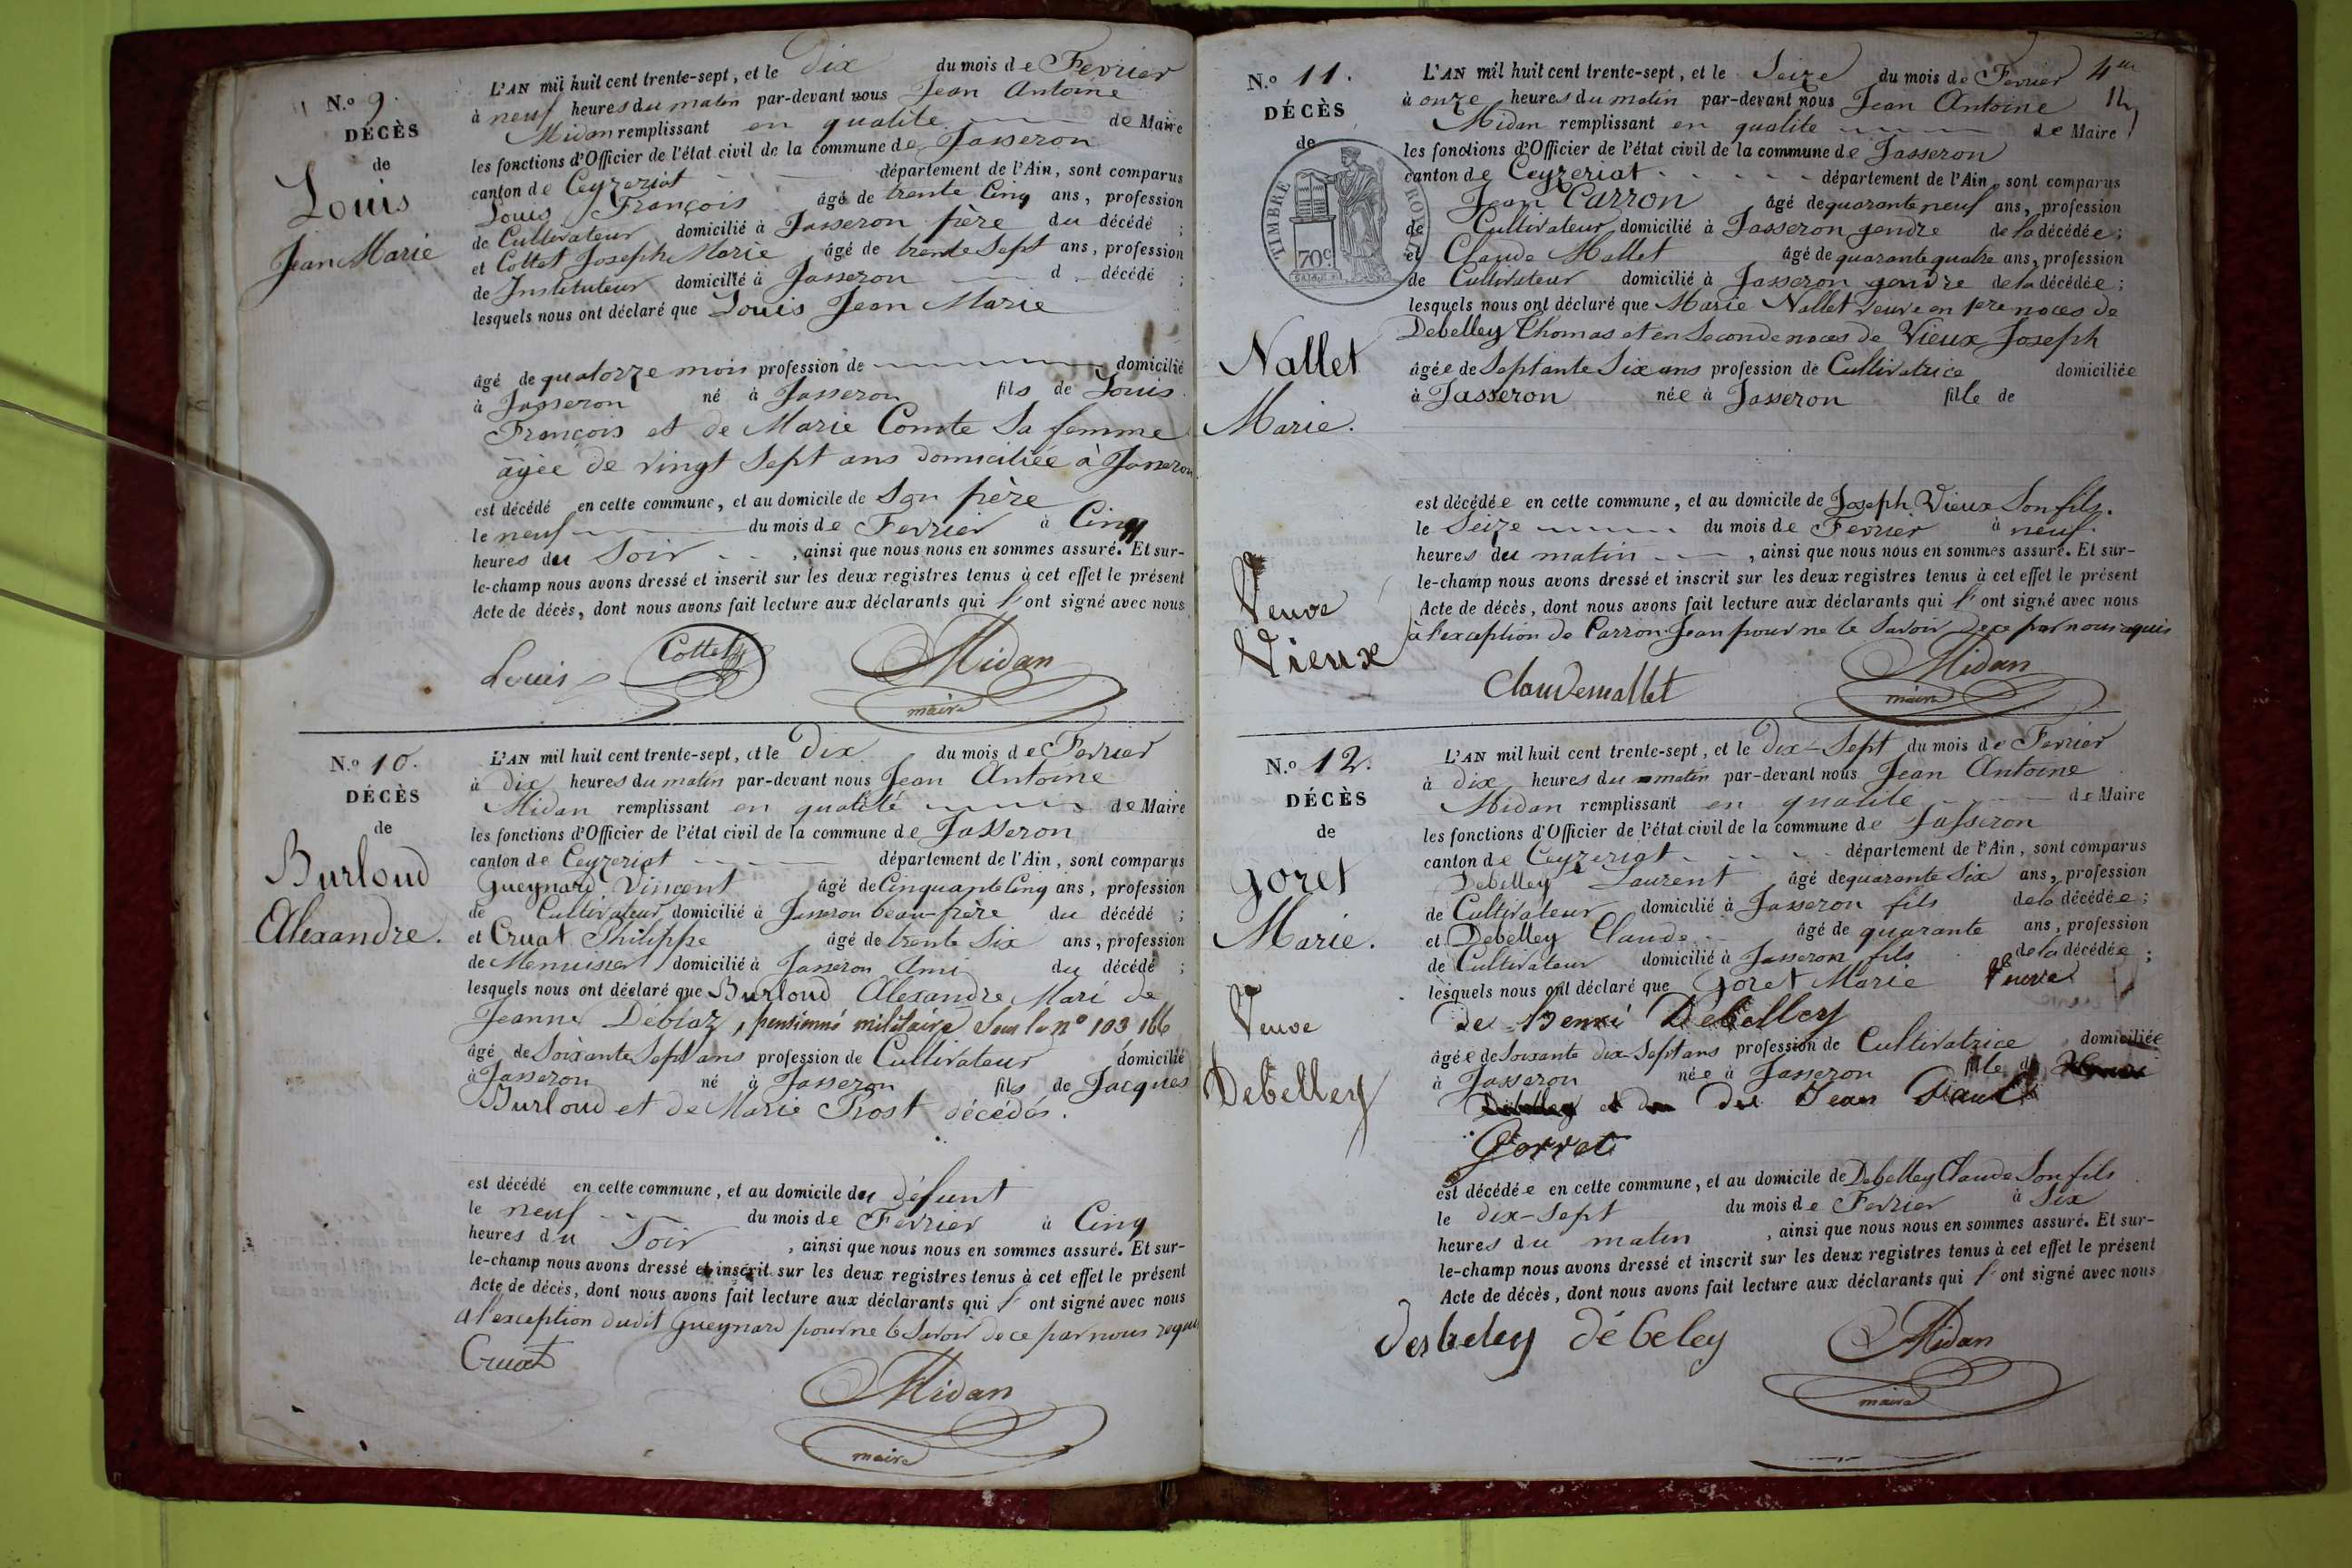 N.º 9.
DÉCÈS
de
Louis
Jean Marie
L'AN mil huit cent trente-sept, et le Dix du mois de Fevrier
à neuf heures du matin par-devant nous Jean Antoine
Midan remplissant en qualité de Maire
les fonctions d'Officier de l'état civil de la commune de Jasseron
canton de Ceyzeriat département de l'Ain, sont comparus
Louis François âgé de trente Cinq ans, profession
de Cultivateur domicilié à Jasseron père du décédé ;
et Cottet Joseph Marie âgé de trente Sept ans, profession
de Instituteur domicilié à Jasseron d décédé ;
lesquels nous ont déclaré que Louis Jean Marie
âgé de quatorze mois profession de domicilié
à Jasseron né à Jasseron fils de Louis
François et de Marie Comte Sa femme
âgée de vingt Sept ans domiciliée à Jasseron
est décédé en cette commune, et au domicile de Son père
le neuf du mois de Fevrier à Cinq
heures du Soir , ainsi que nous nous en sommes assuré. Et sur-
le-champ nous avons dressé et inscrit sur les deux registres tenus à cet effet le présent
Acte de décès, dont nous avons fait lecture aux déclarants qui l'ont signé avec nous
Louis Cottet Midan
maire
N.º 10.
DÉCÈS
de
Burloud
Alexandre.
L'AN mil huit cent trente-sept, et le Dix du mois de Fevrier
à dix heures du matin par-devant nous Jean Antoine
Midan remplissant en qualité de Maire
les fonctions d'Officier de l'état civil de la commune de Jasseron
canton de Ceyzeriat département de l'Ain, sont comparus
Gueynard Vincent âgé de Cinquante Cinq ans, profession
de Cultivateur domicilié à Jasseron beau-frère du décédé ;
et Cruat Philippe âgé de trente Six ans, profession
de Menuisier domicilié à Jasseron Ami du décédé ;
lesquels nous ont déclaré que Burloud Alexandre Mari de
Jeanne Debiaz, pensionné militaire Sous le nº 103 166
âgé de Soixante Sept ans profession de Cultivateur domicilié
à Jasseron né à Jasseron fils de Jacques
Burloud et de Marie Prost décédés.
est décédé en cette commune, et au domicile du défunt
le neuf du mois de Fevrier à Cinq
heures du Soir , ainsi que nous nous en sommes assuré. Et sur-
le-champ nous avons dressé et inscrit sur les deux registres tenus à cet effet le présent
Acte de décès, dont nous avons fait lecture aux déclarants qui l'ont signé avec nous
a l'exception dudit Gueynard pour ne le Savoir de ce par nous requis
Cruat Midan
maire
N.º 11.
DÉCÈS
de
TIMBRE ROYAL
70c
Nallet
Marie.
Veuve
Vieux
L'AN mil huit cent trente-sept, et le Seize du mois de Fevrier
à onze heures du matin par-devant nous Jean Antoine
Midan remplissant en qualité de Maire
les fonctions d'Officier de l'état civil de la commune de Jasseron
canton de Ceyzeriat département de l'Ain, sont comparus
Jean Carron âgé de quarante neuf ans, profession
de Cultivateur domicilié à Jasseron gendre de la décédée ;
et Claude Mallet âgé de quarante quatre ans, profession
de Cultivateur domicilié à Jasseron gendre de la décédée ;
lesquels nous ont déclaré que Marie Nallet veuve en 1ere noces de
Debelley Thomas et en Seconde noces de Vieux Joseph
âgée de Septante Six ans profession de Cultivatrice domiciliée
à Jasseron née à Jasseron fille de
est décédée en cette commune, et au domicile de Joseph Vieux Son fils.
le Seize du mois de Fevrier à neuf
heures du matin , ainsi que nous nous en sommes assuré. Et sur-
le-champ nous avons dressé et inscrit sur les deux registres tenus à cet effet le présent
Acte de décès, dont nous avons fait lecture aux déclarants qui l'ont signé avec nous
à l'exception de Carron Jean pour ne le Savoir de ce par nous aquis
Claudemallet Midan
maire
N.º 12.
DÉCÈS
de
Goret
Marie.
Veuve
Debelley
L'AN mil huit cent trente-sept, et le Dix-Sept du mois de Fevrier
à dix heures du matin par-devant nous Jean Antoine
Midan remplissant en qualité de Maire
les fonctions d'Officier de l'état civil de la commune de Jasseron
canton de Ceyzeriat département de l'Ain, sont comparus
Debelley Laurent âgé de quarante Six ans, profession
de Cultivateur domicilié à Jasseron fils de la décédée ;
et Debelley Claude âgé de quarante ans, profession
de Cultivateur domicilié à Jasseron fils de la décédée ;
lesquels nous ont déclaré que Goret Marie Veuve
de Henri Debelley
âgée de Soixante dix-Sept ans profession de Cultivatrice domiciliée
à Jasseron née à Jasseron fille de
Debelley et de Jean
Gorret
est décédée en cette commune, et au domicile de Debelley Claude Son fils
le dix-Sept du mois de Fevrier à Six
heures du matin , ainsi que nous nous en sommes assuré. Et sur-
le-champ nous avons dressé et inscrit sur les deux registres tenus à cet effet le présent
Acte de décès, dont nous avons fait lecture aux déclarants qui l'ont signé avec nous
desbeley débeley Midan
maire